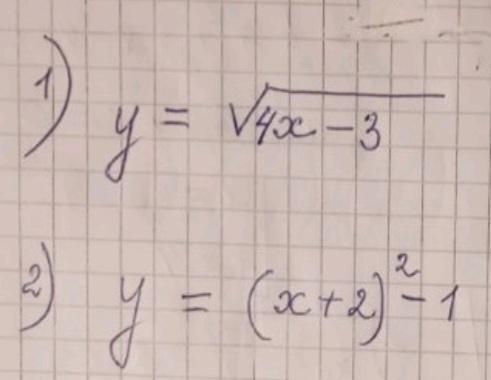 1) y = √(4x − 3)
2) y = (x+2)² − 1